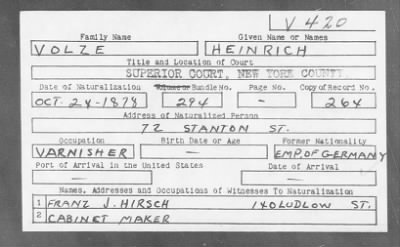 V 420
Family Name Given Name or Names
VOLZE HEINRICH
Title and Location of Court
SUPERIOR COURT, NEW YORK COUNTY.
Date of Naturalization Volume or Bundle No. Page No. Copy of Record No.
OCT. 24-1878 294 - 264
Address of Naturalized Person
72 STANTON ST.
Occupation Birth Date or Age Former Nationality
VARNISHER — EMP. OF GERMANY
Port of Arrival in the United States Date of Arrival
— —
Names, Addresses and Occupations of Witnesses To Naturalization
1 FRANZ J. HIRSCH 140 LUDLOW ST.
2 CABINET MAKER